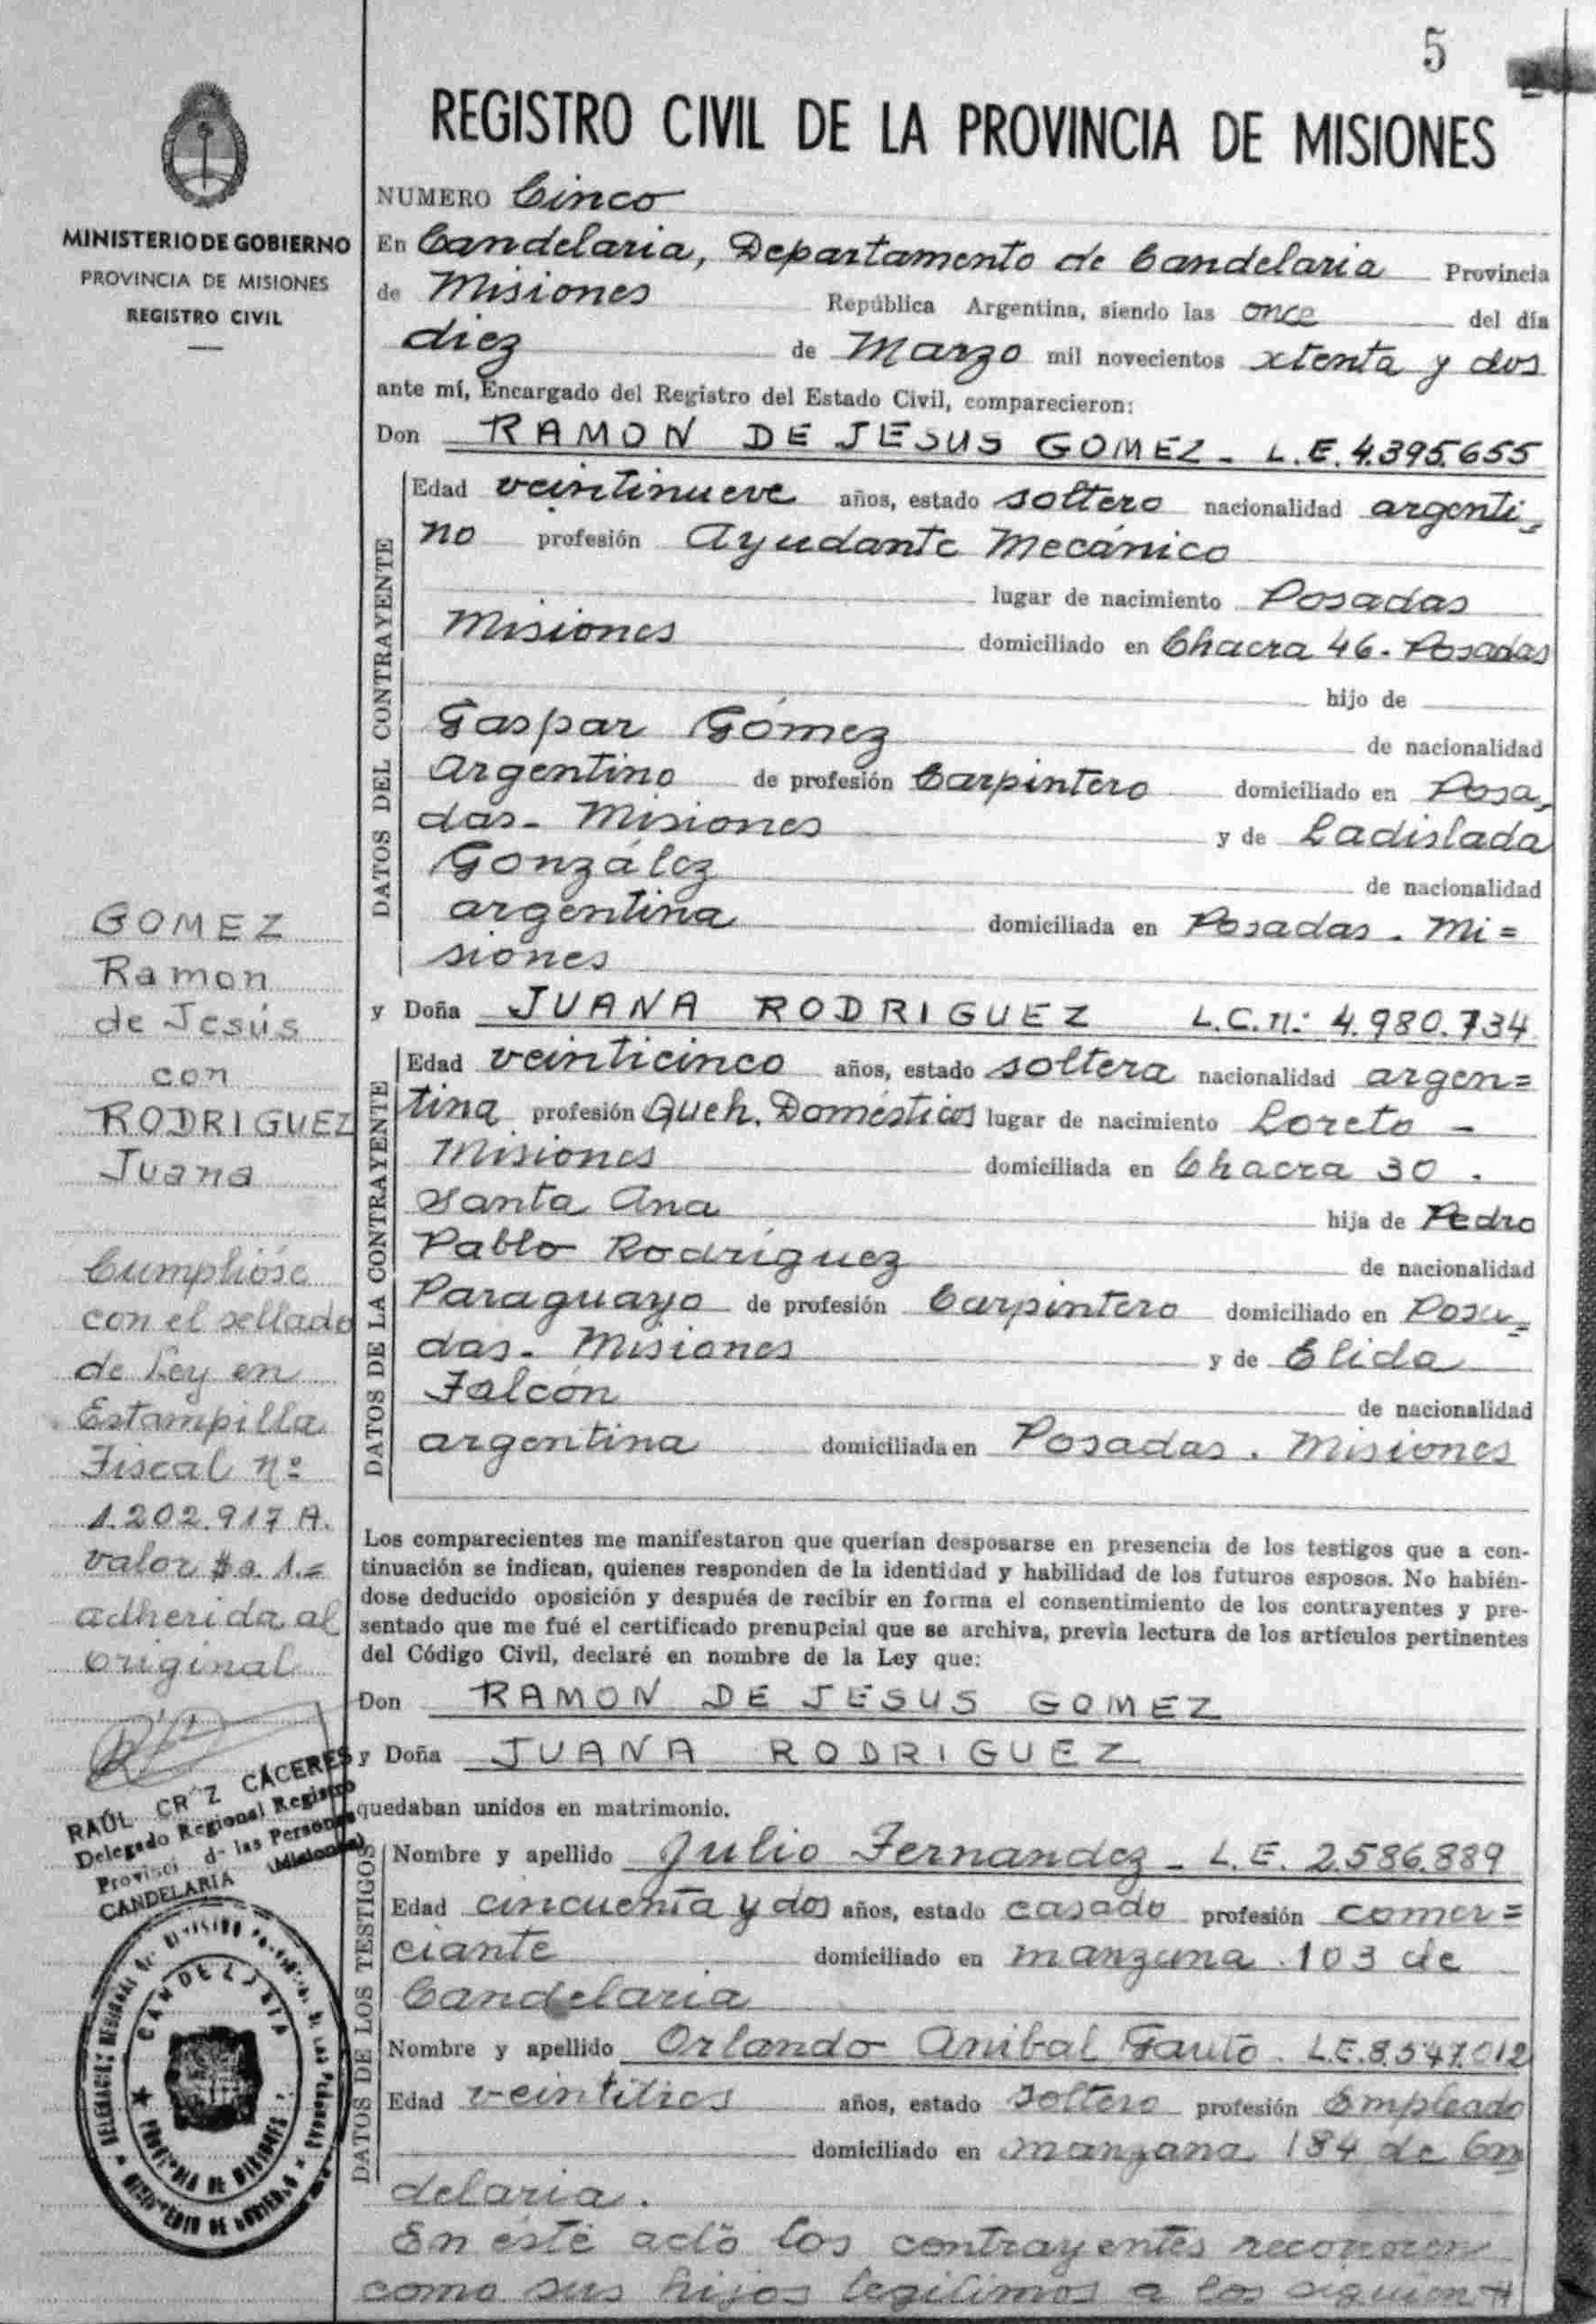 5
REGISTRO CIVIL DE LA PROVINCIA DE MISIONES
MINISTERIO DE GOBIERNO
PROVINCIA DE MISIONES
REGISTRO CIVIL
NUMERO Cinco
En Candelaria, Departamento de Candelaria Provincia
de Misiones República Argentina, siendo las once del día
diez de Marzo mil novecientos setenta y dos
ante mí, Encargado del Registro del Estado Civil, comparecieron:
Don RAMON DE JESUS GOMEZ - L.E. 4.395.655
DATOS DEL CONTRAYENTE
Edad veintinueve años, estado soltero nacionalidad argenti=
no profesión Ayudante Mecánico
lugar de nacimiento Posadas
Misiones domiciliado en Chacra 46 - Posadas
hijo de
Gaspar Gómez de nacionalidad
Argentino de profesión Carpintero domiciliado en Posa=
das - Misiones y de Ladislada
González de nacionalidad
argentina domiciliada en Posadas . Mi=
siones
y Doña JUANA RODRIGUEZ L.C.n: 4.980.734
DATOS DE LA CONTRAYENTE
Edad veinticinco años, estado soltera nacionalidad argen=
tina profesión Queh. Domésticos lugar de nacimiento Loreto -
Misiones domiciliada en Chacra 30 .
Santa Ana hija de Pedro
Pablo Rodríguez de nacionalidad
Paraguayo de profesión Carpintero domiciliado en Posa=
das - Misiones y de Elida
Falcón de nacionalidad
argentina domiciliada en Posadas . Misiones
Los comparecientes me manifestaron que querían desposarse en presencia de los testigos que a con-
tinuación se indican, quienes responden de la identidad y habilidad de los futuros esposos. No habién-
dose deducido oposición y después de recibir en forma el consentimiento de los contrayentes y pre-
sentado que me fué el certificado prenupcial que se archiva, previa lectura de los artículos pertinentes
del Código Civil, declaré en nombre de la Ley que:
Don RAMON DE JESUS GOMEZ
y Doña JUANA RODRIGUEZ
quedaban unidos en matrimonio.
DATOS DE LOS TESTIGOS
Nombre y apellido Julio Fernandez - L.E. 2.586.889
Edad cincuenta y dos años, estado casado profesión comer=
ciante domiciliado en manzana 103 de
Candelaria
Nombre y apellido Orlando Anibal Fauto - L.E. 8.547.012
Edad veintitres años, estado soltero profesión Empleado
domiciliado en manzana 184 de Can
delaria .
En éste acto los contrayentes reconocen
como sus hijos legítimos a los siguien
GOMEZ
Ramon
de Jesús
con
RODRIGUEZ
Juana
Cumplióse
con el sellado
de Ley en
Estampilla
Fiscal Nº
1.202.917 A.
valor $a. 1.=
adherida al
original
RAÚL CR Z CÁCERES
Delegado Regional Registro
Provinci d las Personas
CANDELARIA (Misiones)
CANDELARIA
PROVINCIA DE MISIONES
MINISTERIO DE GOBIERNO